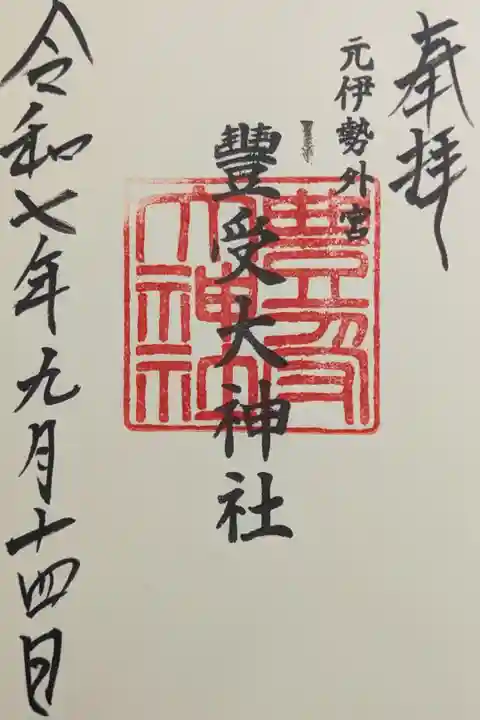 奉拝
元伊勢外宮
豐受大神社
豐受大神社
令和七年九月十四日